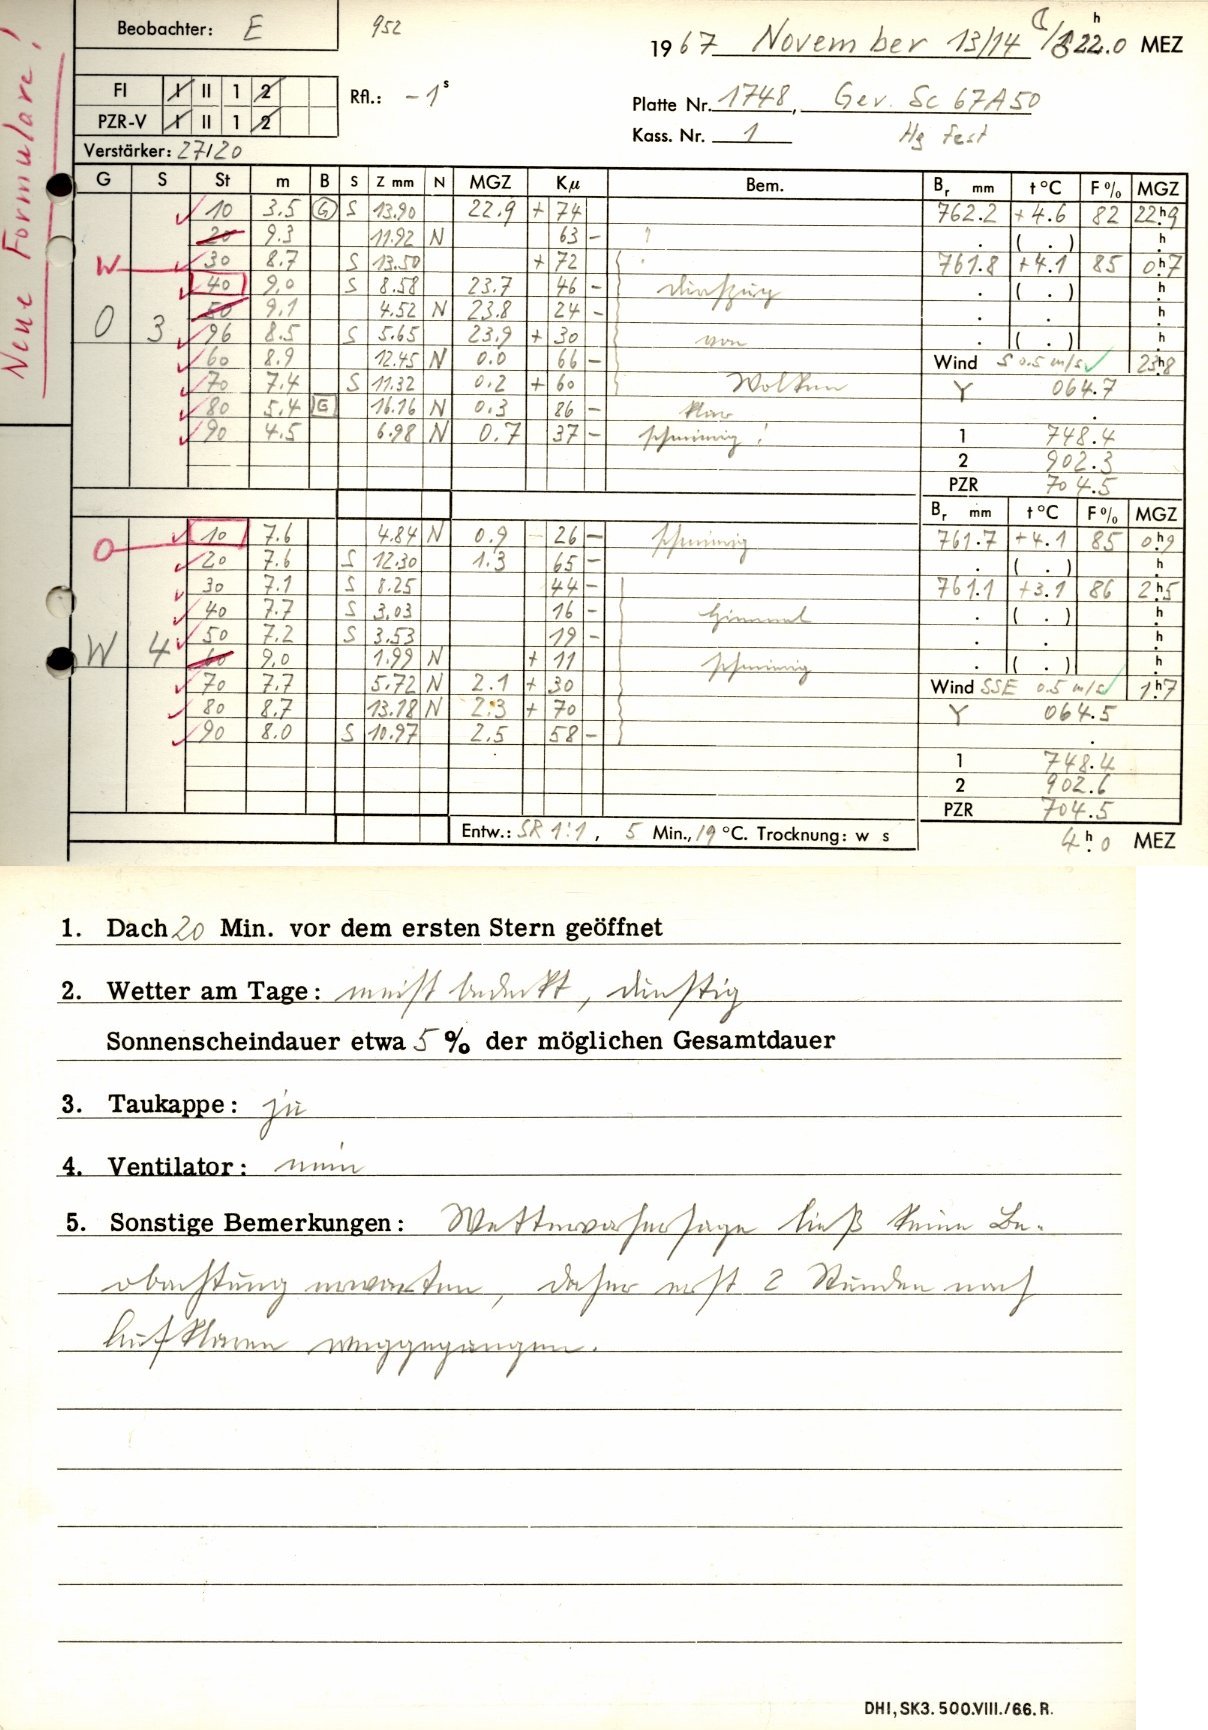 Neue Formulare!
Beobachter: E 952
1967 November 13/14 22.0 h MEZ
FI I II 1 2
Rfl.: -1 s
Platte Nr. 1748, Gev. Sc 67A50
PZR-V I II 1 2
Kass. Nr. 1 Hg fest
Verstärker: 27/20
G S St m B S Z mm N MGZ Kμ Bem. Br mm t °C F % MGZ
10 3.5 G S 13.90 22.9 + 74 762.2 +4.6 82 22h9
20 9.3 11.92 N 63 - ! . ( . ) h
W 30 8.7 S 13.50 + 72 761.8 +4.1 85 0h7
40 9.0 S 8.58 23.7 46 - Durchzug . ( . ) h
50 9.1 4.52 N 23.8 24 - . . h
O 3 96 8.5 S 5.65 23.9 + 30 von . ( . ) h
60 8.9 12.45 N 0.0 66 - Wind S 0.5 m/s 23h8
70 7.4 S 11.32 0.2 + 60 Wolken Y 064.7
80 5.4 G 16.16 N 0.3 86 - klar .
90 4.5 6.98 N 0.7 37 - schmierig! 1 748.4
2 902.3
PZR 704.5
Br mm t °C F % MGZ
O 10 7.6 4.84 N 0.9 - 26 - schmierig 761.7 +4.1 85 0h9
20 7.6 S 12.30 1.3 65 - . ( . ) h
30 7.1 S 8.25 44 - 761.1 +3.1 86 2h5
40 7.7 S 3.03 16 - Himmel . ( . ) h
W 4 50 7.2 S 3.53 19 - . . h
60 9.0 1.99 N + 11 schmierig . ( . ) h
70 7.7 5.72 N 2.1 + 30 Wind SSE 0.5 m/s 1h7
80 8.7 13.18 N 2.3 + 70 Y 064.5
90 8.0 S 10.97 2.5 58 - .
1 748.4
2 902.6
PZR 704.5
Entw.: SR 1:1, 5 Min., 19 °C. Trocknung: w s
4 h 0 MEZ
1. Dach 20 Min. vor dem ersten Stern geöffnet
2. Wetter am Tage: meist bedeckt, dunstig
Sonnenscheindauer etwa 5 % der möglichen Gesamtdauer
3. Taukappe: zu
4. Ventilator: nein
5. Sonstige Bemerkungen: Wettervorhersage ließ keine Be-
obachtung erwarten, daher erst 2 Stunden nach
Aufklaren weggegangen.
DHI, SK3. 500.VIII./66. R.